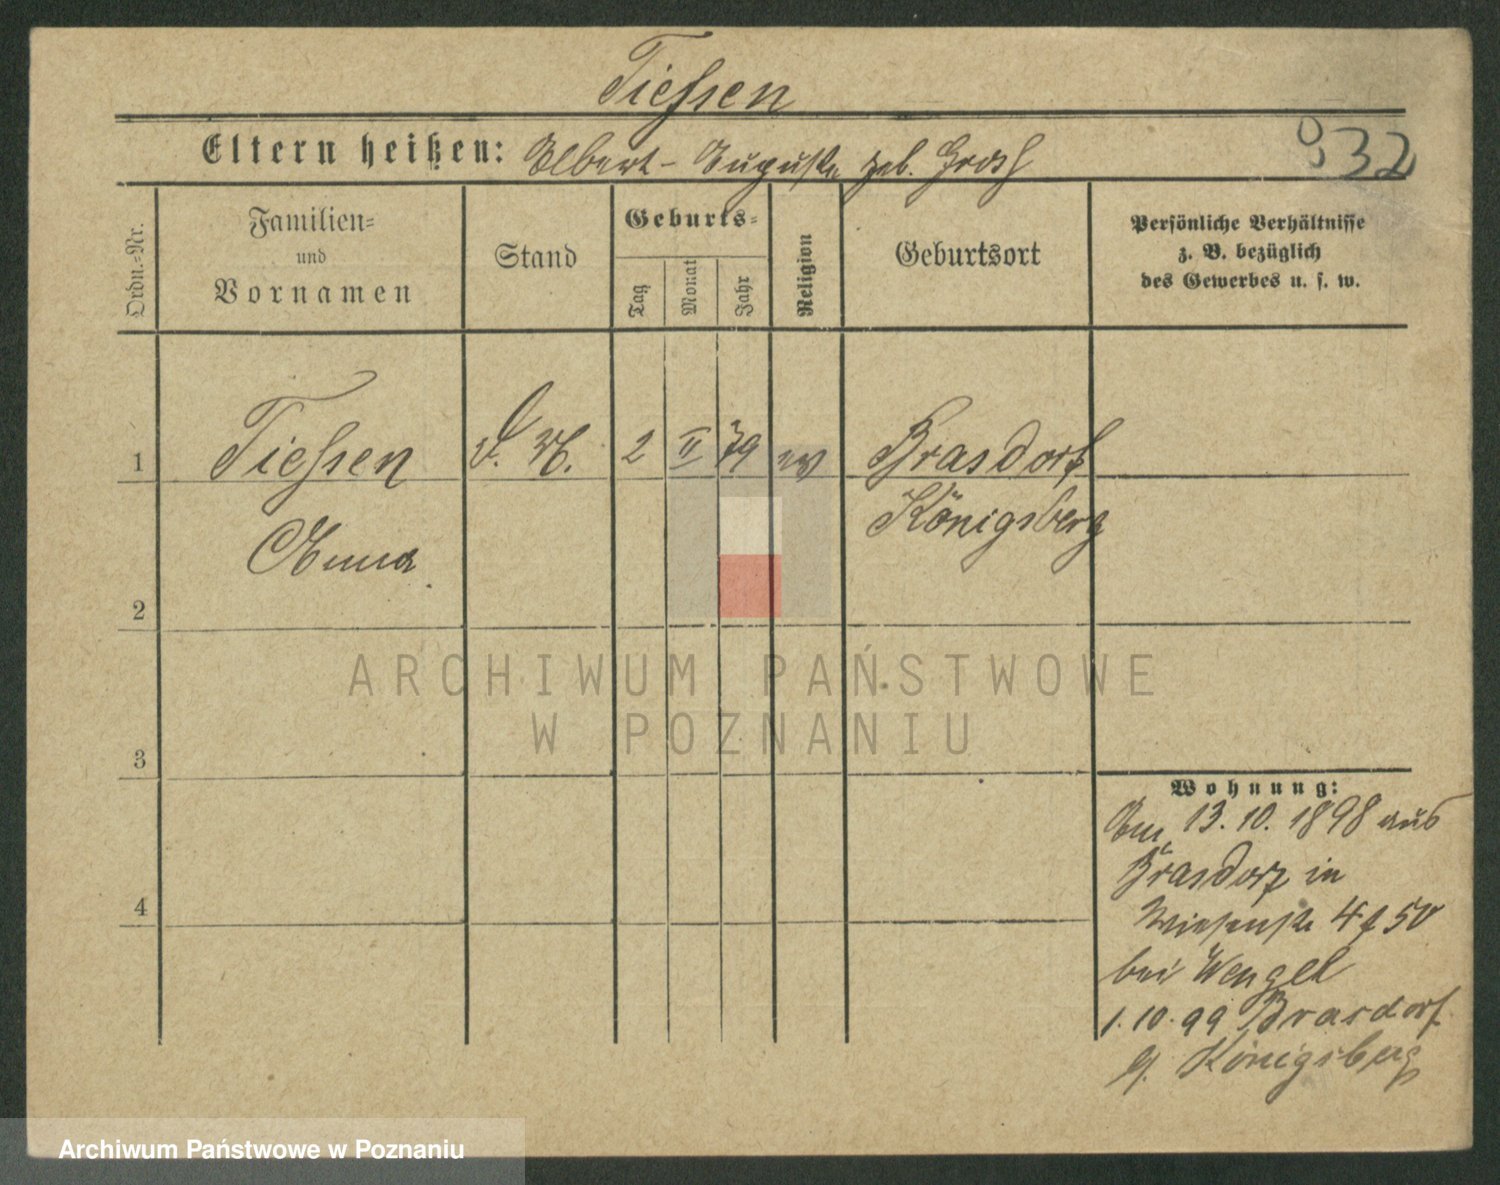 Tiessen
Eltern heißen: Albert - Auguste geb. Grosf
932
Ordn.-Nr.
Familien-
und
Vornamen
Stand
Geburts-
Tag
Monat
Jahr
Religion
Geburtsort
Persönliche Verhältnisse
z. B. bezüglich
des Gewerbes u. s. w.
1
Tiessen
D. M.
2
II
79
ev
Brasdorf
Königsberg
Anna
2
ARCHIWUM PAŃSTWOWE
W POZNANIU
3
Wohnung:
Am 13.10.1898 aus
Brasdorf in
4
Wiesenstr 4 f 50
bei Wengel
1.10.99 Brasdorf
Königsberg
Archiwum Państwowe w Poznaniu